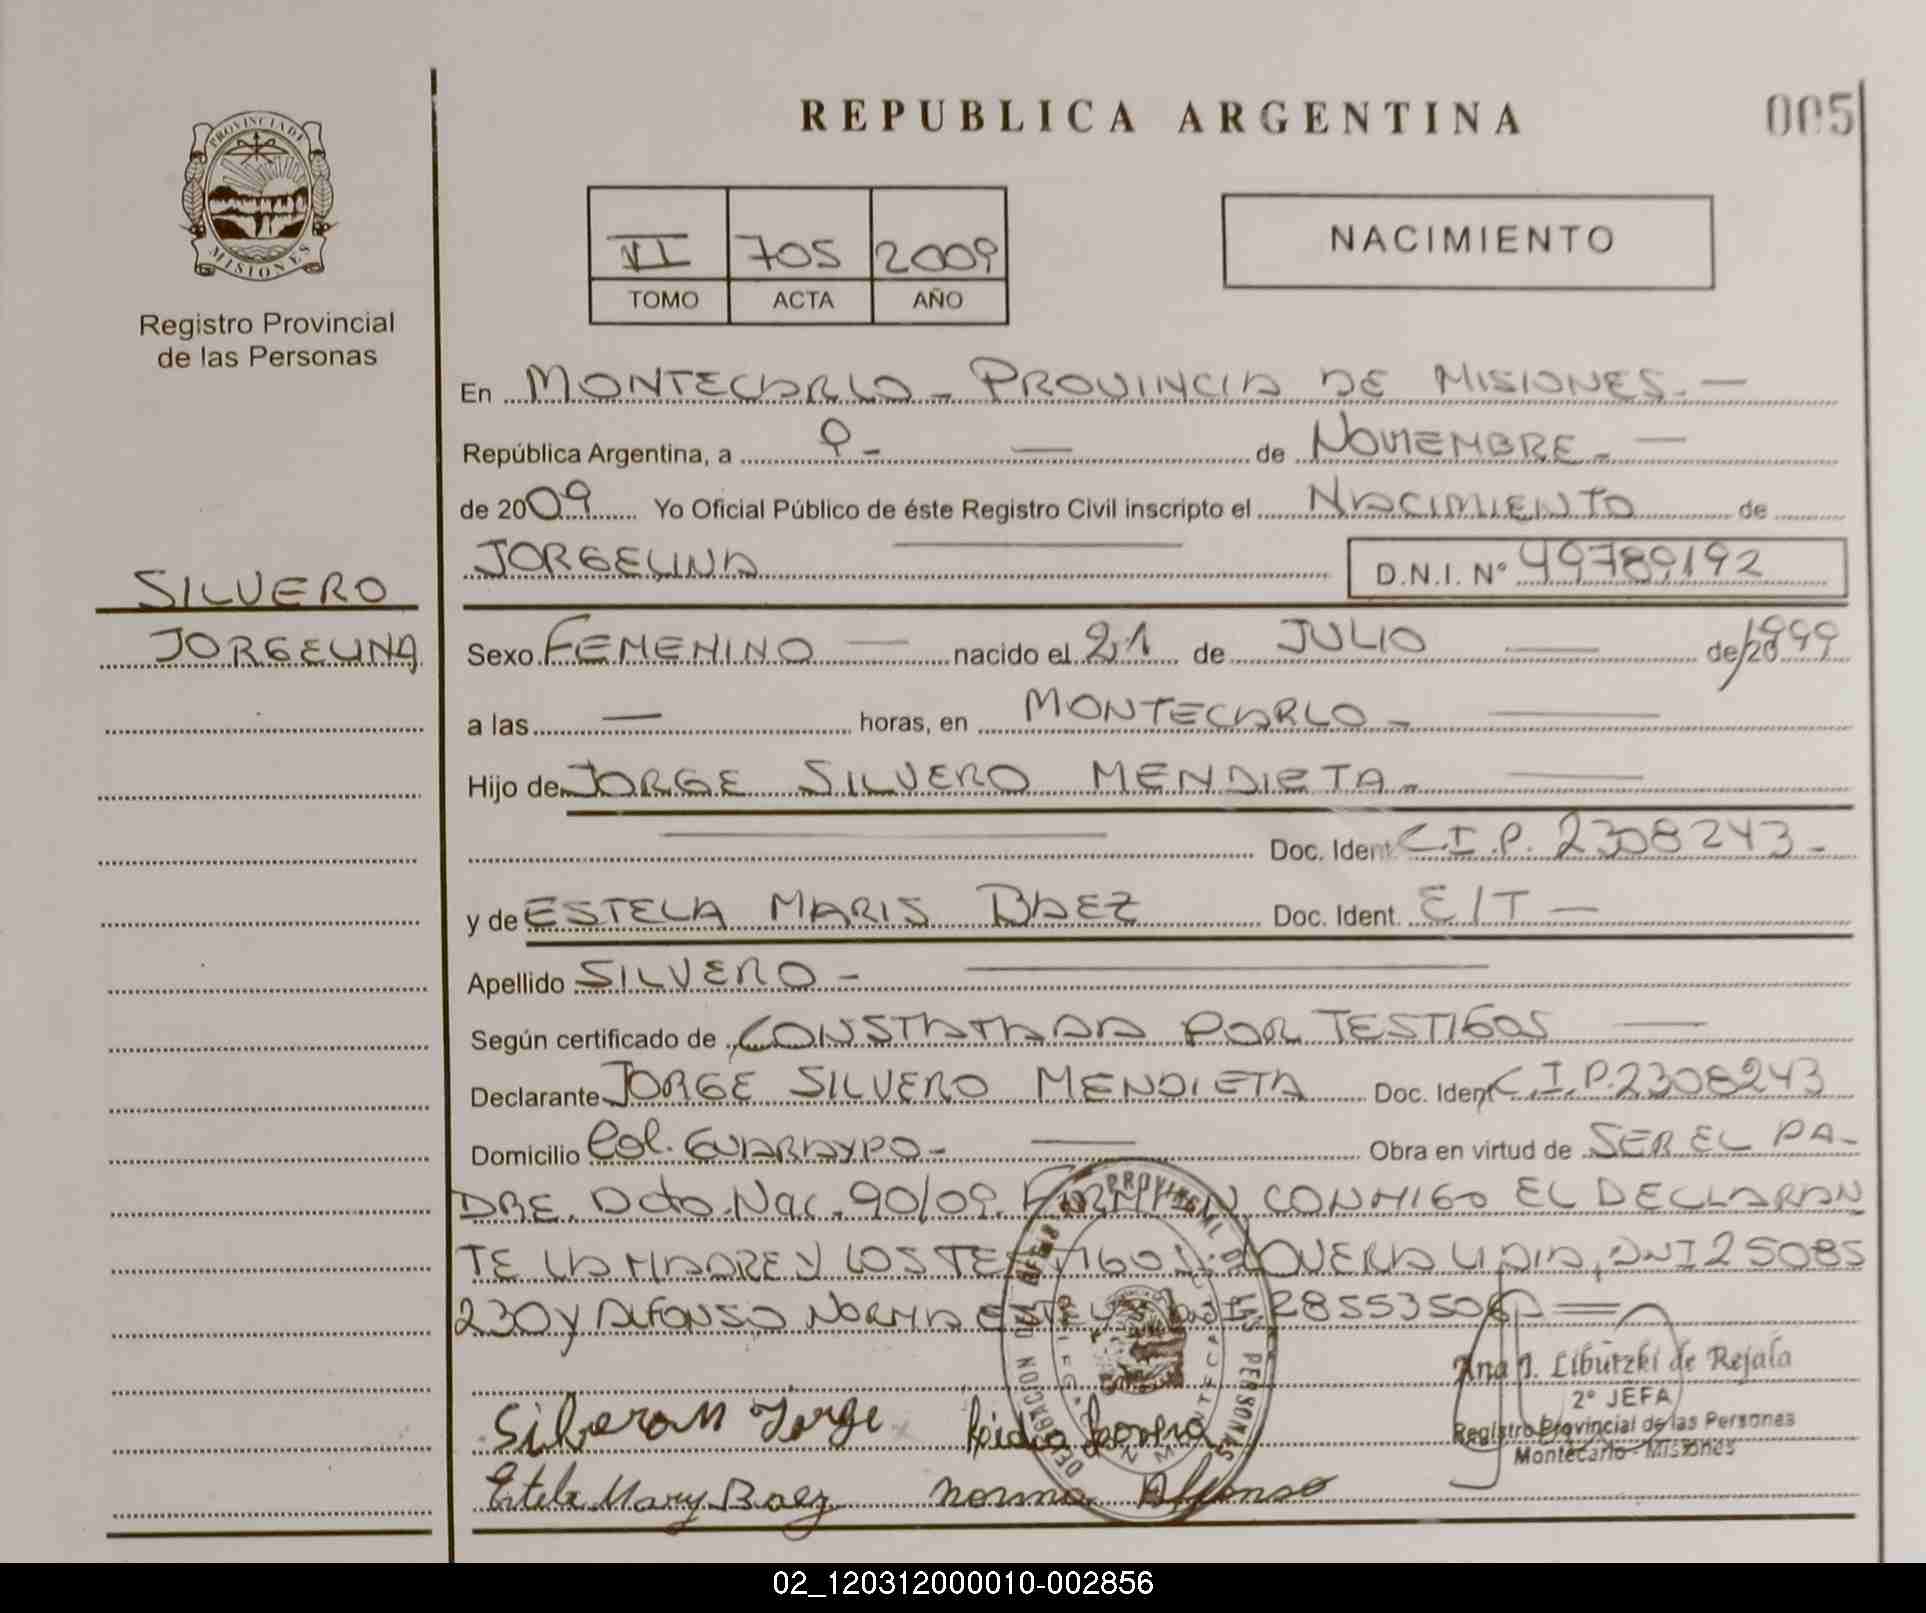 REPUBLICA ARGENTINA
005
PROVINCIA DE
MISIONES
Registro Provincial
de las Personas
VI 705 2009
TOMO ACTA AÑO
NACIMIENTO
En MONTECARLO - PROVINCIA DE MISIONES. —
República Argentina, a 9 - — de NOVIEMBRE - —
de 2009 Yo Oficial Público de éste Registro Civil inscripto el NACIMIENTO de
JORGELINA — D.N.I. Nº 49789192
SILVERO
JORGELINA
Sexo FEMENINO — nacido el 21 de JULIO — de/20 1999
a las — horas, en MONTECARLO - —
Hijo de JORGE SILVERO MENDIETA - —
— Doc. Ident C.I.P. 2308243 -
y de ESTELA MARIS BAEZ Doc. Ident. E/T —
Apellido SILVERO - —
Según certificado de CONSTATADA POR TESTIGOS —
Declarante JORGE SILVERO MENDIETA Doc. Ident C.I.P. 2308243
Domicilio Col. GUARAYPO - — Obra en virtud de SER EL PA-
DRE. Dcto. Nac. 90/09. FIRMAN CONMIGO EL DECLARAN
TE LA MADRE Y LOS TESTIGOS: LIDIA, DNI 25085
230 Y ALFONSO NORMA ESTELA DNI
Ana J. Libutzki de Rejala
2º JEFA
Registro Provincial de las Personas
Montecarlo - Misiones
Silvero M Jorge
Estela Mary Baez Norma Alfonso
PROVINCIAL DE LAS PERSONAS
02_120312000010-002856